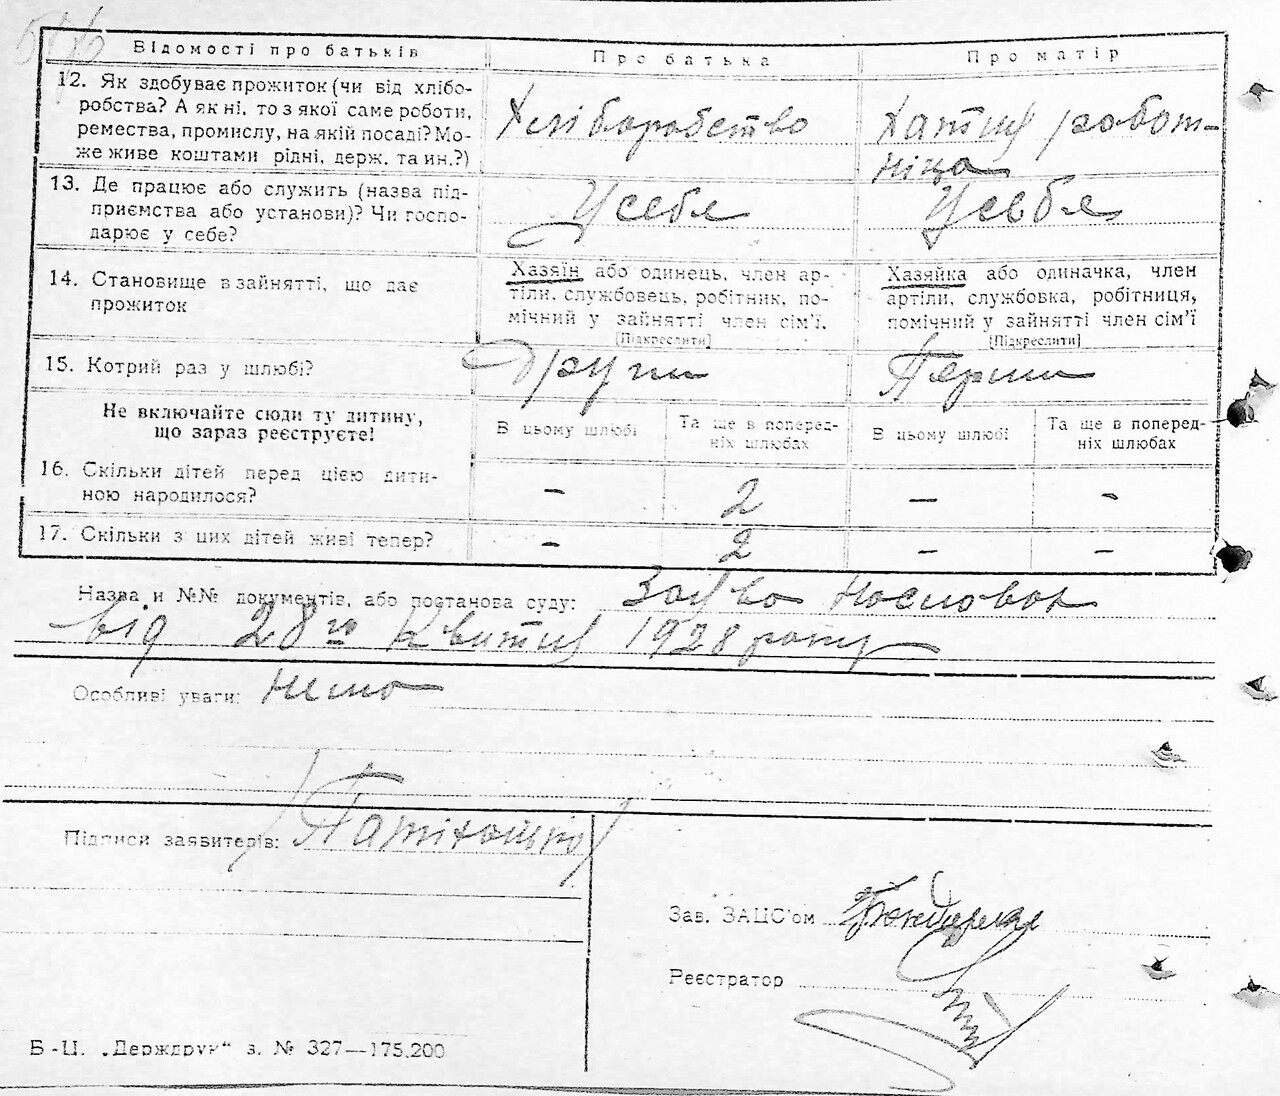 Відомості про батьків Про батька Про матір
12. Як здобуває прожиток (чи від хлібо-
робства? А як ні, то з якої саме роботи,
ремества, промислу, на якій посаді? Мо-
же живе коштами рідні, держ. та ин.?)
Хліборобство
Хатня робот-
ніца
13. Де працює або служить (назва під-
приємства або установи)? Чи госпо-
дарює у себе?
Усебе
Усебе
14. Становище в зайнятті, що дає
прожиток
Хазяїн або одинець, член ар-
тіли, службовець, робітник, по-
мічний у зайнятті член сім’ї.
[Підкреслити]
Хазяйка або одиначка, член
артіли, службовка, робітниця,
помічний у зайнятті член сім’ї
[Підкреслити]
15. Котрий раз у шлюбі? Други Перши
Не включайте сюди ту дитину,
що зараз реєструєте!
В цьому шлюбі
Та ще в поперед-
ніх шлюбах
В цьому шлюбі
Та ще в поперед-
ніх шлюбах
16. Скільки дітей перед цією дити-
ною народилося?
– 2 – –
17. Скільки з цих дітей живі тепер? – 2 – –
Назва и №№ документів, або постанова суду:
від 28го Квитня 1928 року
Особливі уваги: Нема
Підписи заявитерів:
Зав. ЗАЦС’ом
Реєстратор
Б-Ц. „Держдрук“ з. № 327—175.200